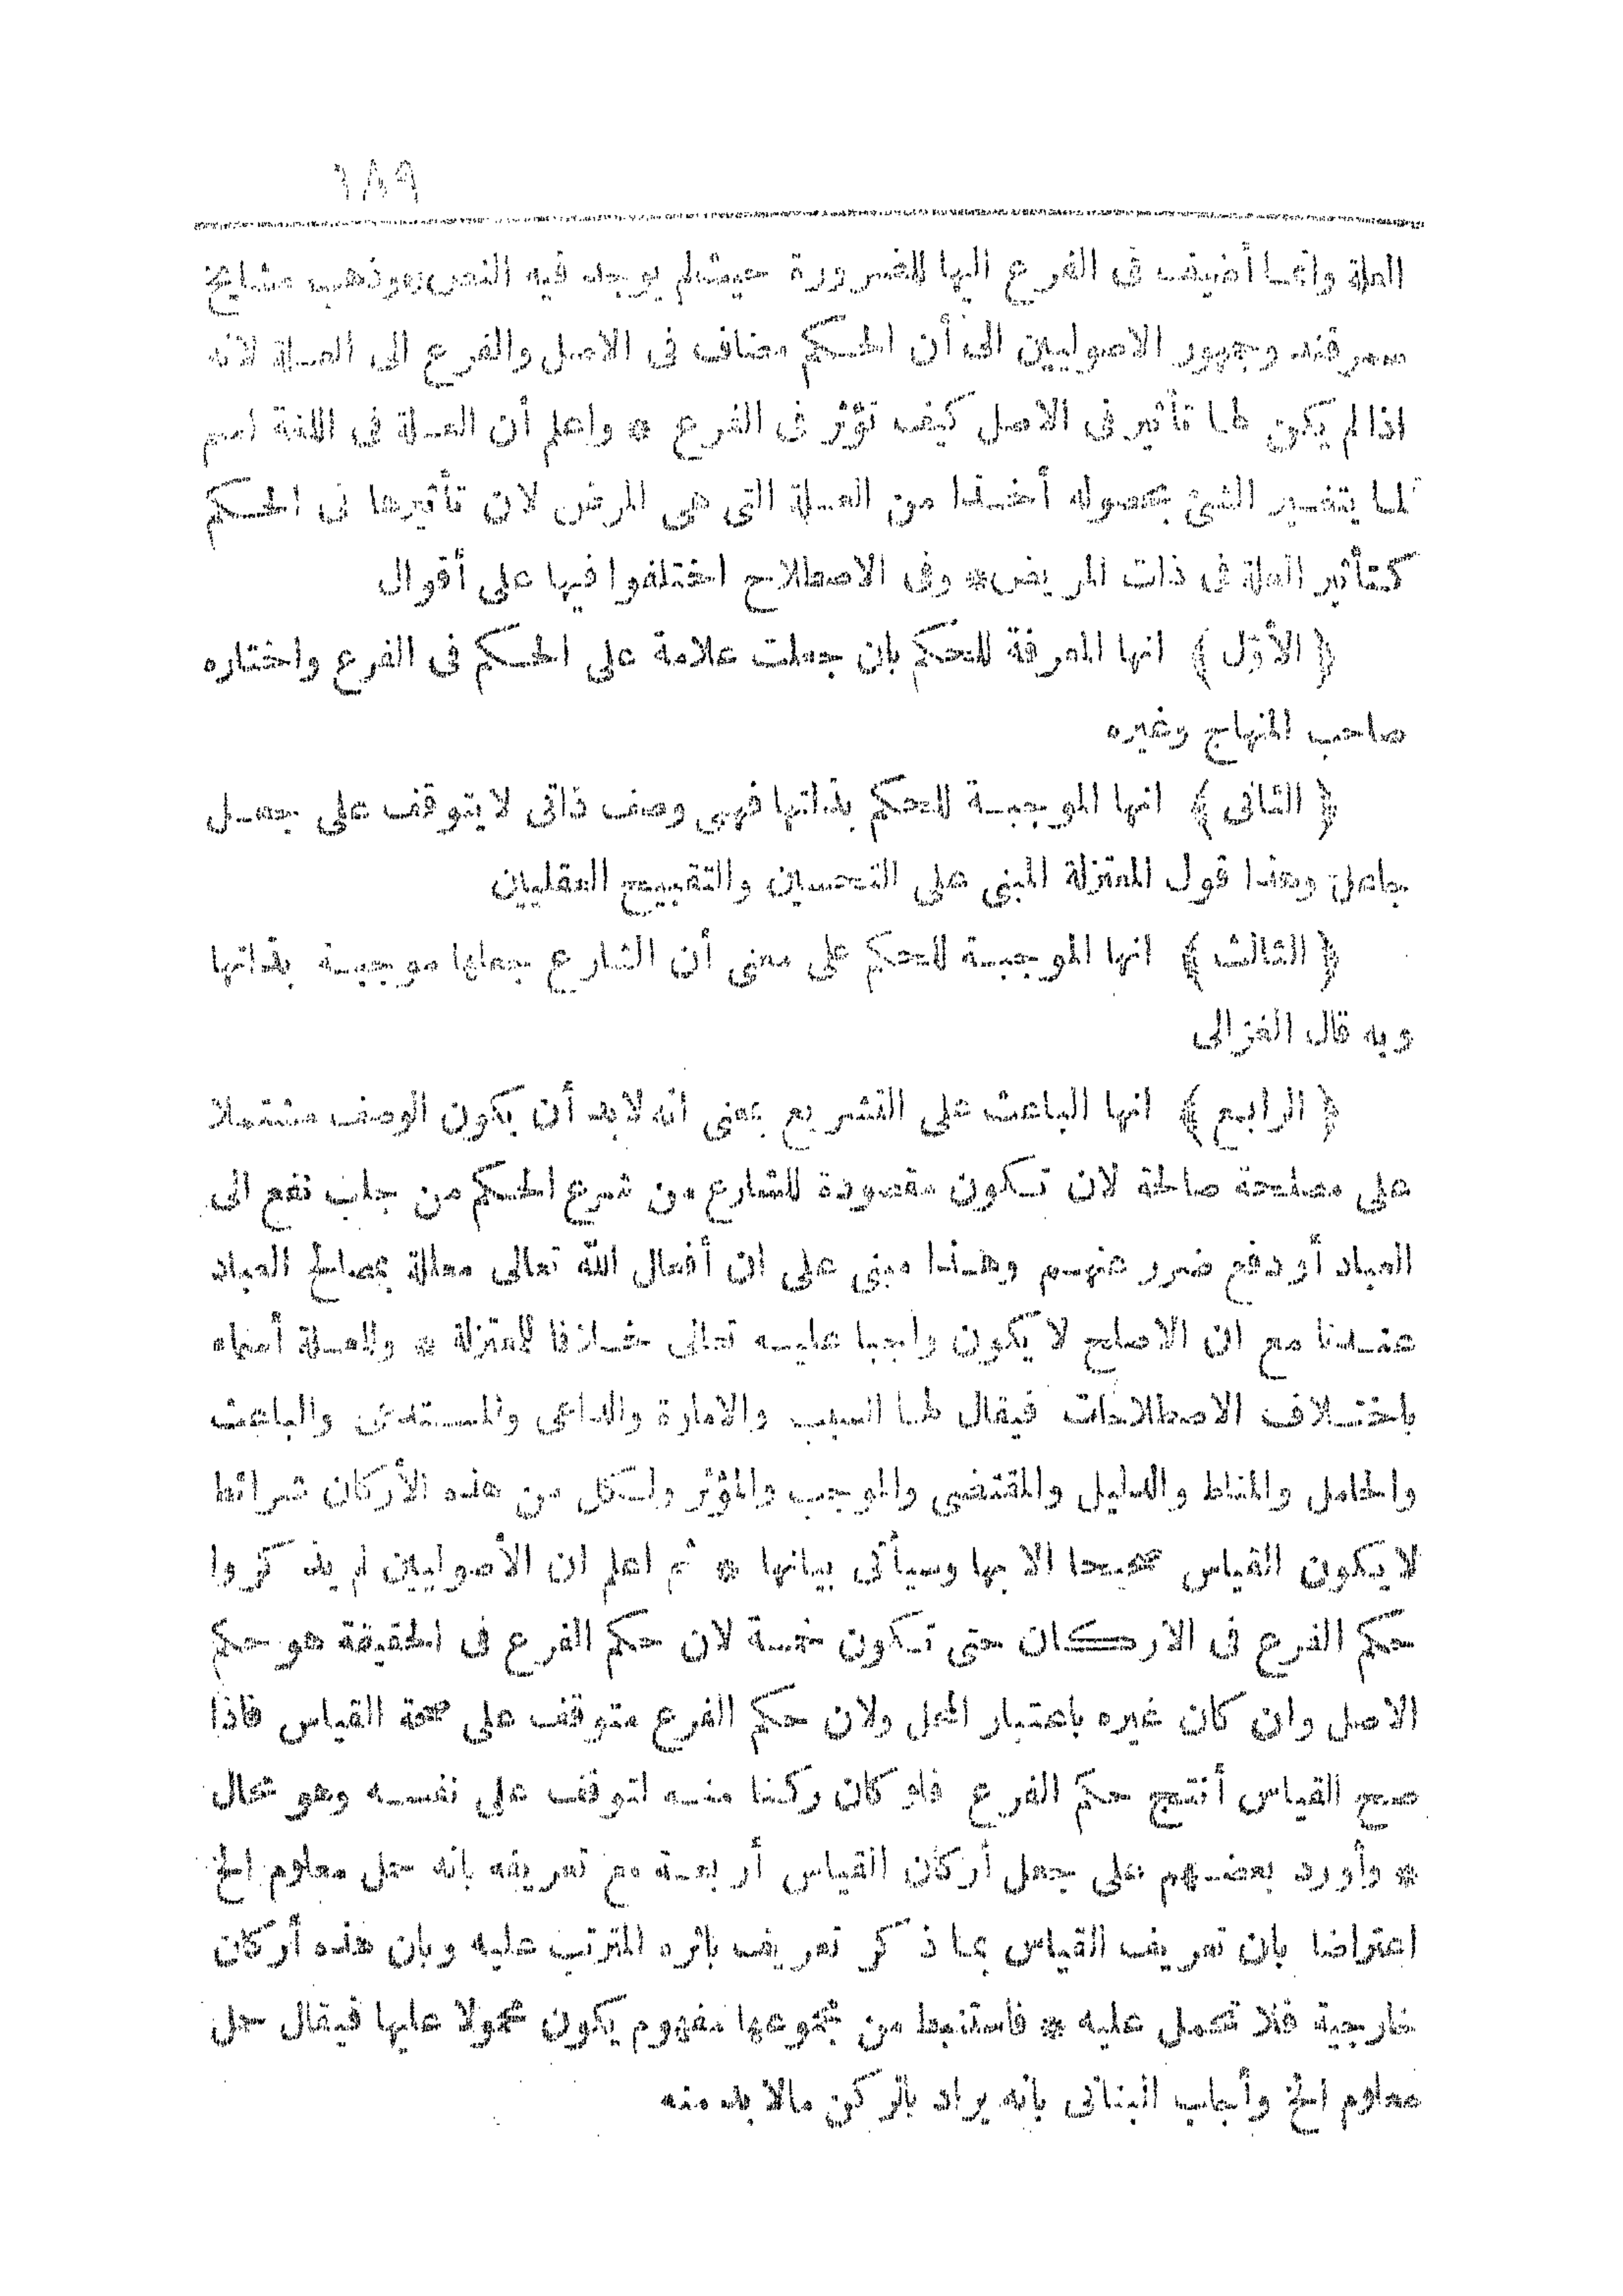 ١٨٩
العلة وانما أضيف فى الفرع اليها للضرورة حيث لم يوجد فيه النص * وذهب مشايخ
سمرقند وجمهور الاصوليين الى أن الحكم مضاف فى الاصل والفرع الى العلة لانه
اذا لم يكن لها تأثير فى الاصل كيف تؤثر فى الفرع * واعلم أن العلة فى اللغة اسم
لما يتغير الشئ بحصوله أخذا من العلة التى هى المرض لان تأثيرها فى الحكم
كتأثير العلة فى ذات المريض * وفى الاصطلاح اختلفوا فيها على أقوال
﴿ الأوّل ﴾ انها المعرفة للحكم بان جعلت علامة على الحكم فى الفرع واختاره
صاحب المنهاج وغيره
﴿ الثانى ﴾ انها الموجبة للحكم بذاتها فهى وصف ذاتى لا يتوقف على جعل
جاعل وهذا قول المعتزلة المبنى على التحسين والتقبيح العقليين
﴿ الثالث ﴾ انها الموجبة للحكم على معنى أن الشارع جعلها موجبة بذاتها
وبه قال الغزالى
﴿ الرابع ﴾ انها الباعث على التشريع بمعنى انه لابد أن يكون الوصف مشتملا
على مصلحة صالحة لان تكون مقصودة للشارع من شرع الحكم من جلب نفع الى
العباد أو دفع ضرر عنهم وهذا مبنى على ان أفعال الله تعالى معللة بمصالح العباد
عندنا مع ان الاصلح لا يكون واجبا عليه تعالى خلافا للمعتزلة * وللعلة أسماء
باختلاف الاصطلاحات فيقال لها السبب والامارة والداعى والمستدعى والباعث
والحامل والمناط والدليل والمقتضى والموجب والمؤثر ولكل من هذه الأركان شرائط
لا يكون القياس صحيحا الا بها وسيأتى بيانها * ثم اعلم ان الأصوليين لم يذكروا
حكم الفرع فى الاركان حتى تكون خمسة لان حكم الفرع فى الحقيقة هو حكم
الاصل وان كان غيره باعتبار المحل ولان حكم الفرع متوقف على صحة القياس فاذا
صح القياس أنتج حكم الفرع فلو كان ركنا منه لتوقف على نفسه وهو محال
* وأورد بعضهم على جعل أركان القياس أربعة مع تعريفه بانه حمل معلوم الخ
اعتراضا بان تعريف القياس بما ذكر تعريف باثره المترتب عليه وبان هذه أركان
خارجية فلا تحمل عليه * فاستنبط من مجموعها مفهوم يكون محمولا عليها فيقال حمل
معلوم الخ وأجاب البنانى بانه يراد بالركن مالا بد منه